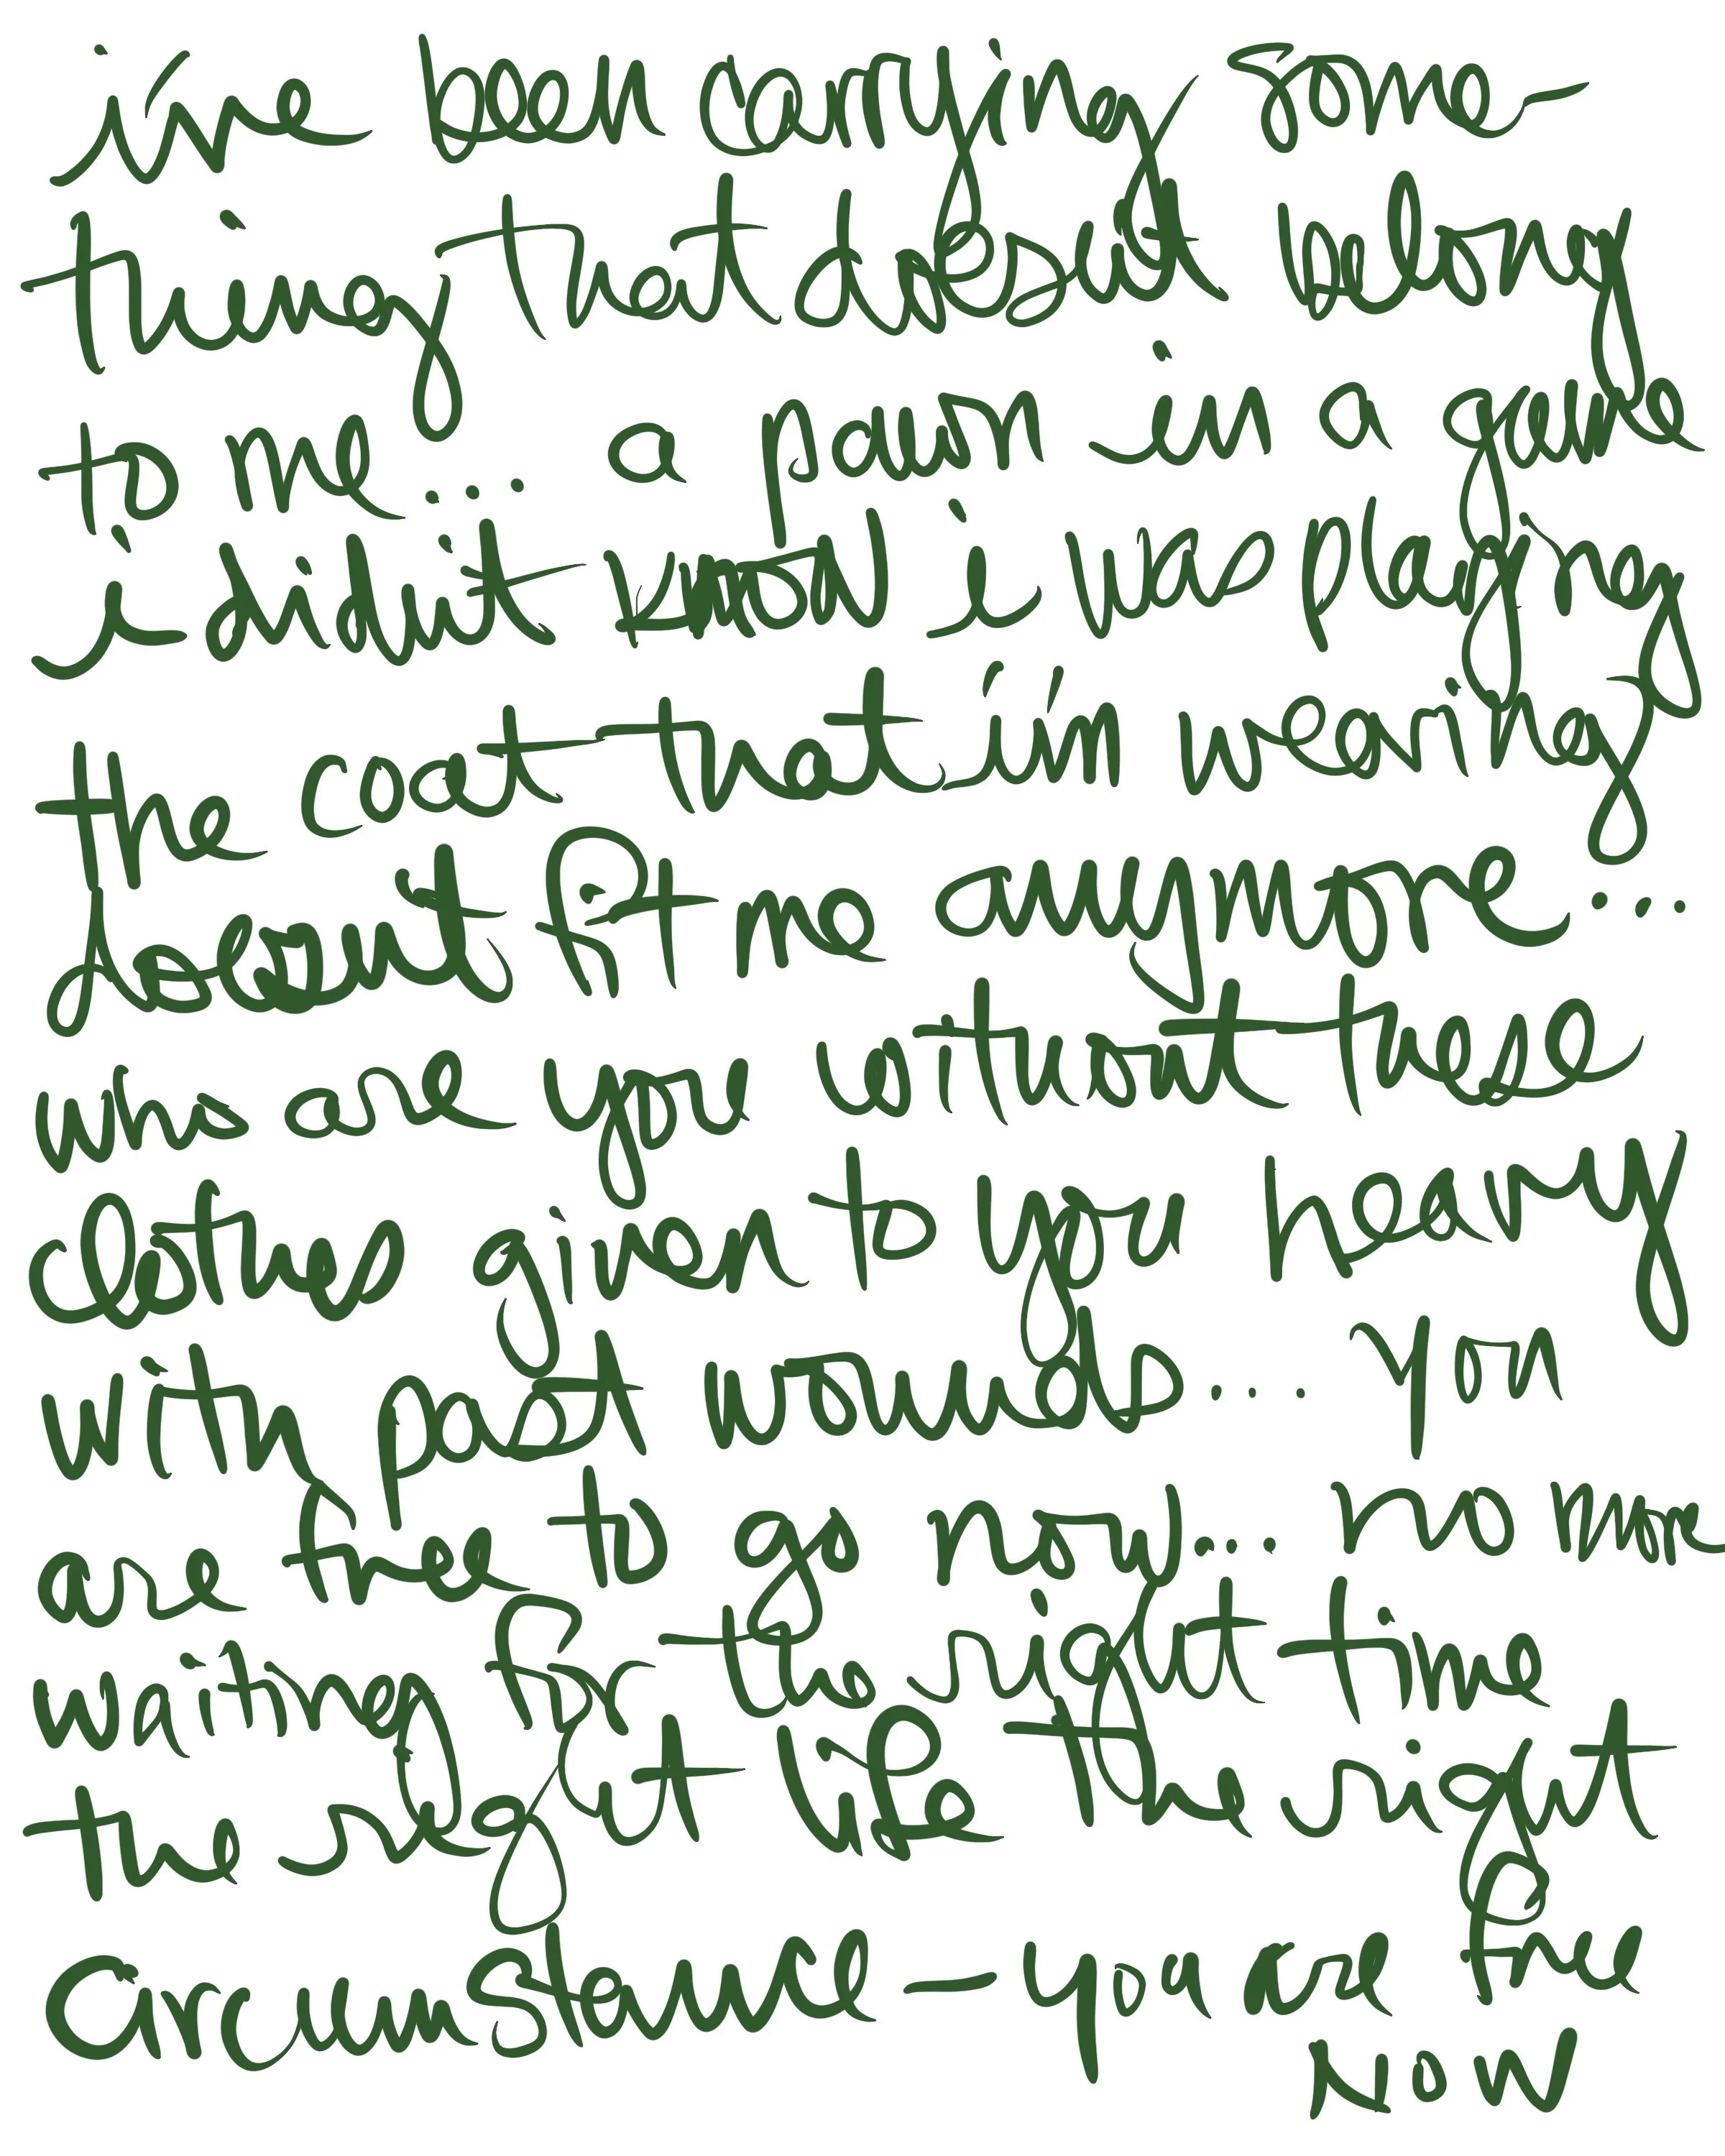 ive been carrying some
thing that doesnt belong
to me... a pawn in a game
i didnt know i was playing
the coat that i'm wearing
doesnt fit me anymore...
who are you without these
clothes given to you heavy
with past wounds... you
are free to go now... no more
waiting for the right time
the right life the right
circumstance - you are free
NOW